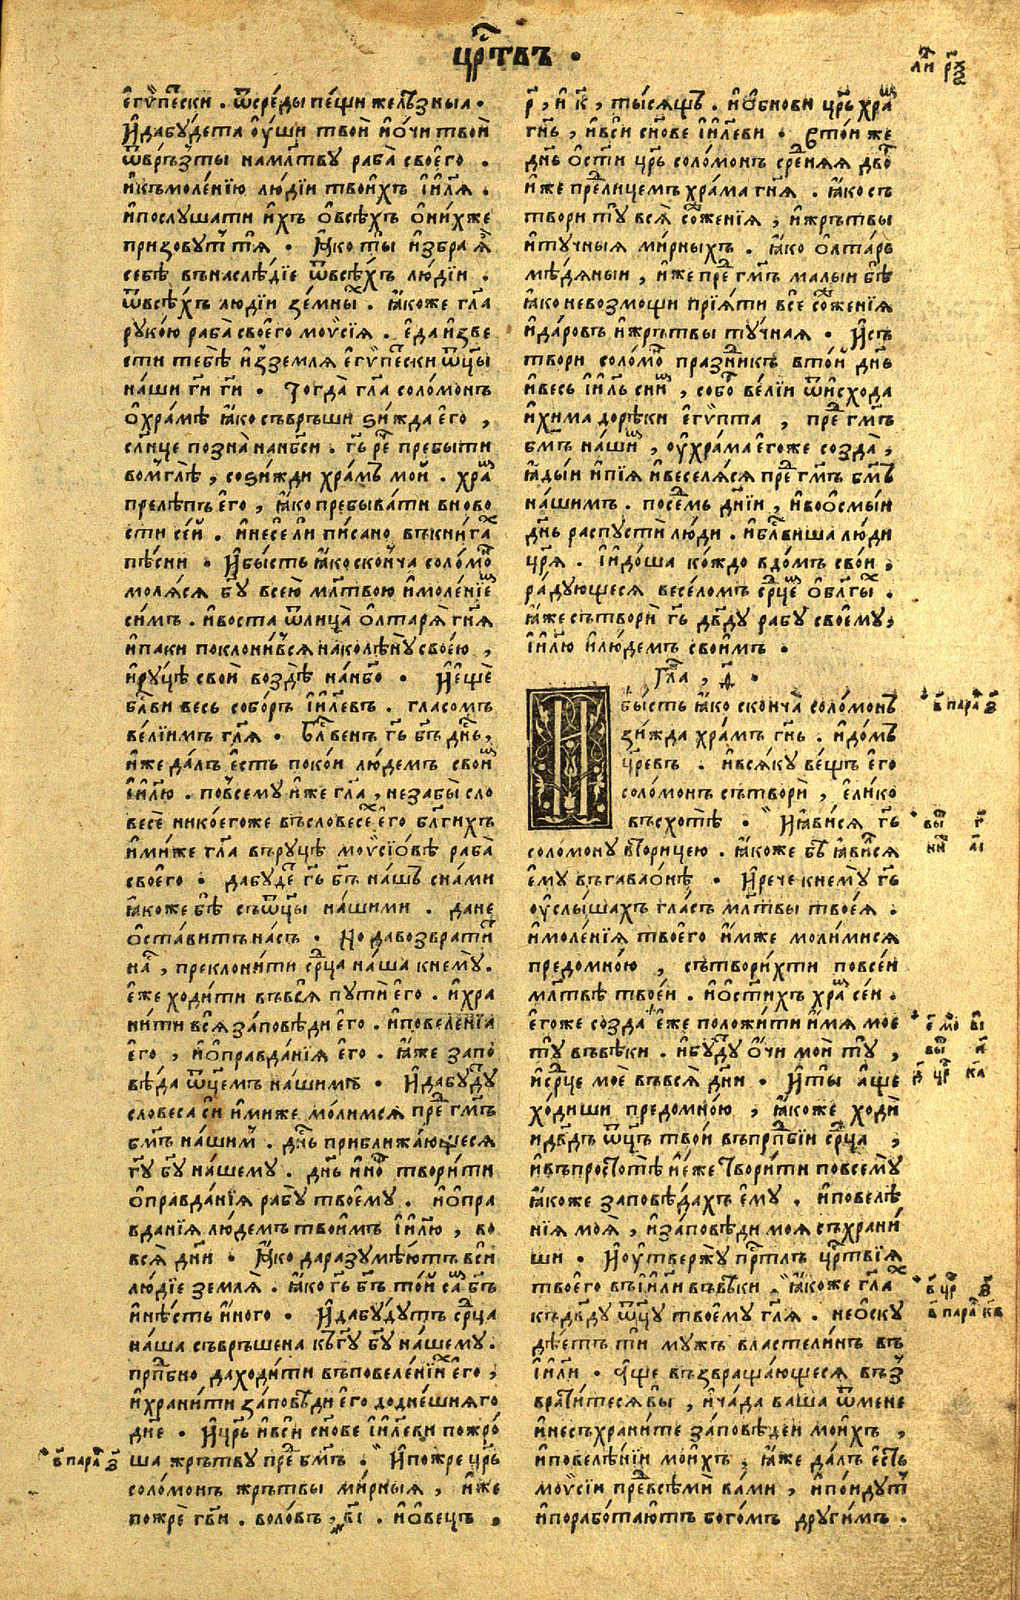 цр҃твъ ·
ли р҃ѯ
є҆гѵ́пєски . ѿсрє́ды пє́щи жєлѣ́зныа ·
И҆дабꙋ́дєта ѹ҆́ши твоѝ и҆ѻ҆́чи твоѝ
ѿврь́зты нам҃лтвꙋ раба̀ своєго̀ .
и҆къмолє́нїю лю́дїи твои́хъ і҆и҃лѧ .
и҆послꙋ́шати и҆́хъ ѻ҆всѣ́хъ ѻ҆ни́хжє
призовꙋ́т тѧ̀ . ꙗ҆́ко ты̀ и҆збра̀ ѧ҆̀
сєбѣ̀ внъаслѣ́дїє ѿвсѣ́хъ лю́дїи .
ѿвсѣ́хъ лю́дїи зємны́х . ꙗ҆́кожє гл҃а
рꙋко́ю раба̀ своєго̀ моѵсі́ѧ . є҆да̀ и҆звє
сти тєбѣ̀ и҆ꙁзємлѧ̀ є҆гѵ́пєски ѿц҃ы
на́ши г҃и г҃и . Тогда̀ гл҃а соло́монъ
ѻ҆хра́мѣ ꙗ҆́ко съвръшѝ ѕи́жда є҆го̀ ,
сл҃нцє позна̀ нан҃бси . г҃ь рє҃ прєбы́ти
вомглѣ̀ , соѕи́жди хра́мъ мо́й . хра́м
прєлѣ́пъ є҆го̀ , ꙗ҆́ко прєбыва́ти вново
сти сє́й . и҆нєсє́ ли пи́сано въкни́гах
пѣ́сни · И҆бы́сть ꙗ҆́ко сконча̀ соло́мон
молѧ́сѧ б҃гꙋ всє́ю м҃лтвою и҆молє́нїєм
си́мъ . и҆воста̀ ѿлица̀ ѻ҆лтарѧ̀ г҃нѧ
и҆па́ки поклони́всѧ наколѣ́нꙋ своє́ю ,
и҆рꙋ́цѣ своѝ воздѣ̀ нан҃бо . И҆є҆щѐ
бл҃ви вєсь собо́ръ і҆и҃лєвъ . гла́сомъ
вє́лїимъ гл҃ѧ . Бл҃вєнъ г҃ь б҃гъ дн҃ь ,
и҆́жє да́лъ є҆́сть поко́и лю́дємъ свои́м
і҆и҃лю . повсємꙋ̀ и҆́жє гл҃а , нєзабы̀ сло
вєсѐ нико́єгожє въсловєсє́х є҆го̀ бл҃ги́хъ
и҆ми́жє гл҃а въ рꙋцѣ̀ моѵсі́ѻвѣ раба̀
своєго̀ . дабꙋ́дєт г҃ь б҃гъ на́шъ сна́ми
ꙗ҆́кожє бѣ̀ съѿц҃ы на́шими . данє
ѻ҆ста́витъ на́съ . Но давозврати́т
на́с , прєклони́ти ср҃ца на́ша кнємꙋ̀ .
є҆́жє ходи́ти въвсѧ̀ пꙋтѝ є҆го̀ . и҆хра
ни́ти всѧ̀ за́повѣди є҆го̀ . и҆повєлє́нїа
є҆го̀ , и҆ѻ҆правда́нїѧ є҆го̀ . ꙗ҆́жє запо
вѣ́да ѿцє́мъ на́шимъ . И҆дабꙋ́дꙋт
словєса̀ сїѝ и҆ми́жє мо́лимсѧ прєд г҃мъ
б҃мъ на́шим . дн҃ь приближа́ющєсѧ
г҃ꙋ б҃гꙋ на́шємꙋ . дн҃ь и҆но́щ твори́ти
ѻ҆правда́нїѧ рабꙋ̀ твоємꙋ̀ . и҆ѻ҆пра
вда́нїѧ лю́дємъ твои́мъ і҆и҃лю , во
всѧ̀ дн҃и . Ꙗ҆́ко даразꙋмѣ́ютъ всѝ
лю́дїє зємлѧ̀ . ꙗ҆́ко г҃ь б҃гъ то́й са́м б҃гъ
и҆нѣ́сть и҆но́го . И҆дабꙋ́дꙋтъ ср҃ца
на́ша съврь́шєна къг҃ꙋ б҃гꙋ на́шємꙋ .
пр҃пбно даходи́ти въповєлє́нїих є҆го̀ ,
и҆храни́ти за́повѣди є҆го̀ дод нє́шнѧго
днє̀ . И҆цр҃ь и҆всѝ сн҃овє і҆и҃лєви пожро́
ша жрь́твꙋ прєд б҃мъ . И҆пожрѐ цр҃ь
соло́монъ жрь́твы ми́рныѧ , и҆́жє
пожрѐ г҃ви . воло́въ , к҃в . и҆ѻ҆вє́цъ ,
в҃ пара з҃
р҃ , и҆ к҃ , ты́сѧщъ . и҆ѻ҆бновѝ цр҃ь хра́м
г҃нь , и҆всѝ сн҃овє і҆и҃лєви . Втои жє
дн҃ь ѻ҆ст҃и цр҃ь соло́монъ срє́днѧѧ дво́р
и҆́жє прєдлицє́мъ хра́ма г҃нѧ . ꙗ҆́ко съ
творѝ тꙋ̀ всѧ̀ сожжє́нїѧ , и҆жрь́твы
и҆тꙋ́чныѧ ми́рныхъ . ꙗ҆́ко ѻ҆лта́рь
мѣ́дѧныи , и҆́жє прєд г҃мъ ма́лыи бѣ̀
ꙗ҆́ко нєвозмо́щи прїѧ́ти всѐ сожжє́нїѧ
и҆даро́въ и҆жрь́твы тꙋ́чнаѧ . И҆съ
творѝ соло́мон пра́зникъ втой дн҃ь
и҆вєсь і҆и҃ль сни́м , собо́р вє́лїи ѿи҆схо́да
и҆хима дорѣкѝ є҆гѵ́пта , прєд г҃мъ
б҃мъ на́шим , ѹ҆хра́ма є҆го́жє созда̀ ,
ꙗ҆ды́и и҆пїѧ̀ и҆вєсєлѧ́сѧ прєд г҃мъ б҃мъ
на́шимъ . посєдмь дн҃їи , и҆воѻ҆смы́и
дн҃ь распꙋстѝ лю́ди . и҆бл҃вишa лю́ди
цр҃ѧ . і҆идо́ша ко́ждо вдо́мъ сво́и .
ра́дꙋющєсѧ вєсє́ломъ ср҃цєм ѻ҆бл҃ги́х .
ꙗ҆́жє сътворѝ г҃ь дв҃дꙋ рабꙋ̀ своємꙋ̀ ,
і҆и҃лю и҆лю́дємъ свои́мъ .
Гл҃а , д҃ .
И бы́сть ꙗ҆́ко сконча̀ соло́монъ
зи́жда хра́мъ г҃нь . и҆до́мъ
цр҃євъ . и҆всѧ́кꙋ вє́щъ є҆го̀
соло́монъ сътворѝ , є҆ли́ко
въсхотѣ̀ . И҆ꙗ҆ви́сѧ г҃ь
соло́монꙋ вто́рицєю . ꙗ҆́кожє бѣ̀ ꙗ҆ви́лсѧ
є҆мꙋ̀ въгаваѻ́нѣ . И҆рєчє̀ кнємꙋ̀ г҃ь
ѹ҆слы́шахъ гла́съ м҃лтвы твоєѧ̀ .
и҆молє́нїѧ твоєго̀ и҆́мжє моли́мисѧ
прєдомно́ю , сътвори́хти повсєи
м҃лтвѣ твоє́и . и҆ѻ҆ст҃и́хъ хра́м сє́и .
є҆го́жє созда̀ є҆́жє положи́ти и҆́мѧ моє̀
тꙋ̀ въвѣ́ки . и҆бꙋ́дꙋт ѻ҆́чи моѝ тꙋ̀ ,
и҆ср҃цє моѐ въвсѧ̀ дн҃и . И҆ты̀ а҆́щє
хо́диши прєдомно́ю , ꙗ҆́кожє ходи́
и҆дв҃дъ ѿц҃ъ тво́и въпр҃пбїи ср҃ца ,
и҆въпростотѣ̀ и҆є́жє твори́ти повсємꙋ̀
ꙗ҆́кожє заповѣ́дахъ є҆мꙋ̀ . и҆повєлѣ́
нїѧ моѧ̀ , и҆за́повѣди моѧ̀ съхрани́
ши . И҆ѹ҆твєржꙋ̀ пр҃тлъ цр҃твїѧ
твоєго̀ въі҆и҃ли въвѣ́ки . ꙗ҆́кожє гл҃ах
къдв҃дꙋ ѿц҃ꙋ твоємꙋ̀ гл҃ѧ . нєѻ҆скꙋ
дѣ́єтъ ти мꙋ́жъ власте́линъ въ
і҆и҃ли . А҆́щє възвраща́ющєсѧ въз
врати́тєсѧ вы̀ , и҆ча́да ва́ша ѿмєнє̀
и҆нєсъхрани́тє за́повѣдєи мои́хъ ,
и҆повєлѣ́нїи мои́хъ , ꙗ҆́жє да́лъ є҆́сть
моѵсі́и прєдвсѣ́ми ва́ми , и҆по́идꙋт
и҆порабо́таютъ бого́мъ дрꙋги́мъ .
в҃ пара з҃